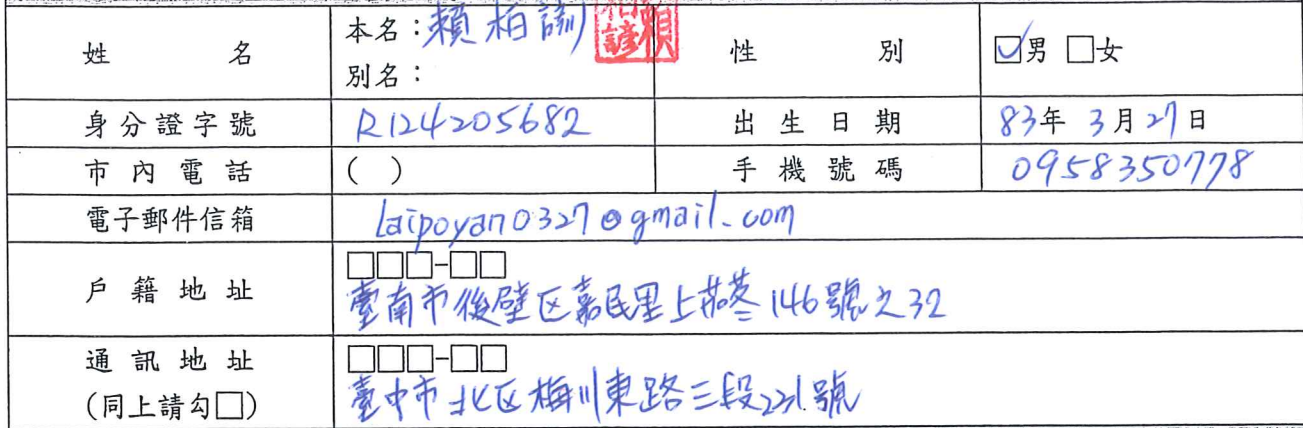 姓名 本名：賴柏諺 性別 ☑男 □女
別名：
身分證字號 R124205682 出生日期 83年3月27日
市內電話 ( ) 手機號碼 0958350778
電子郵件信箱 laipoyan0327@gmail.com
戶籍地址 □□□-□□
臺南市後壁区嘉民里上茄苳146號之32
通訊地址 □□□-□□
(同上請勾□) 臺中市北区梅川東路三段231號